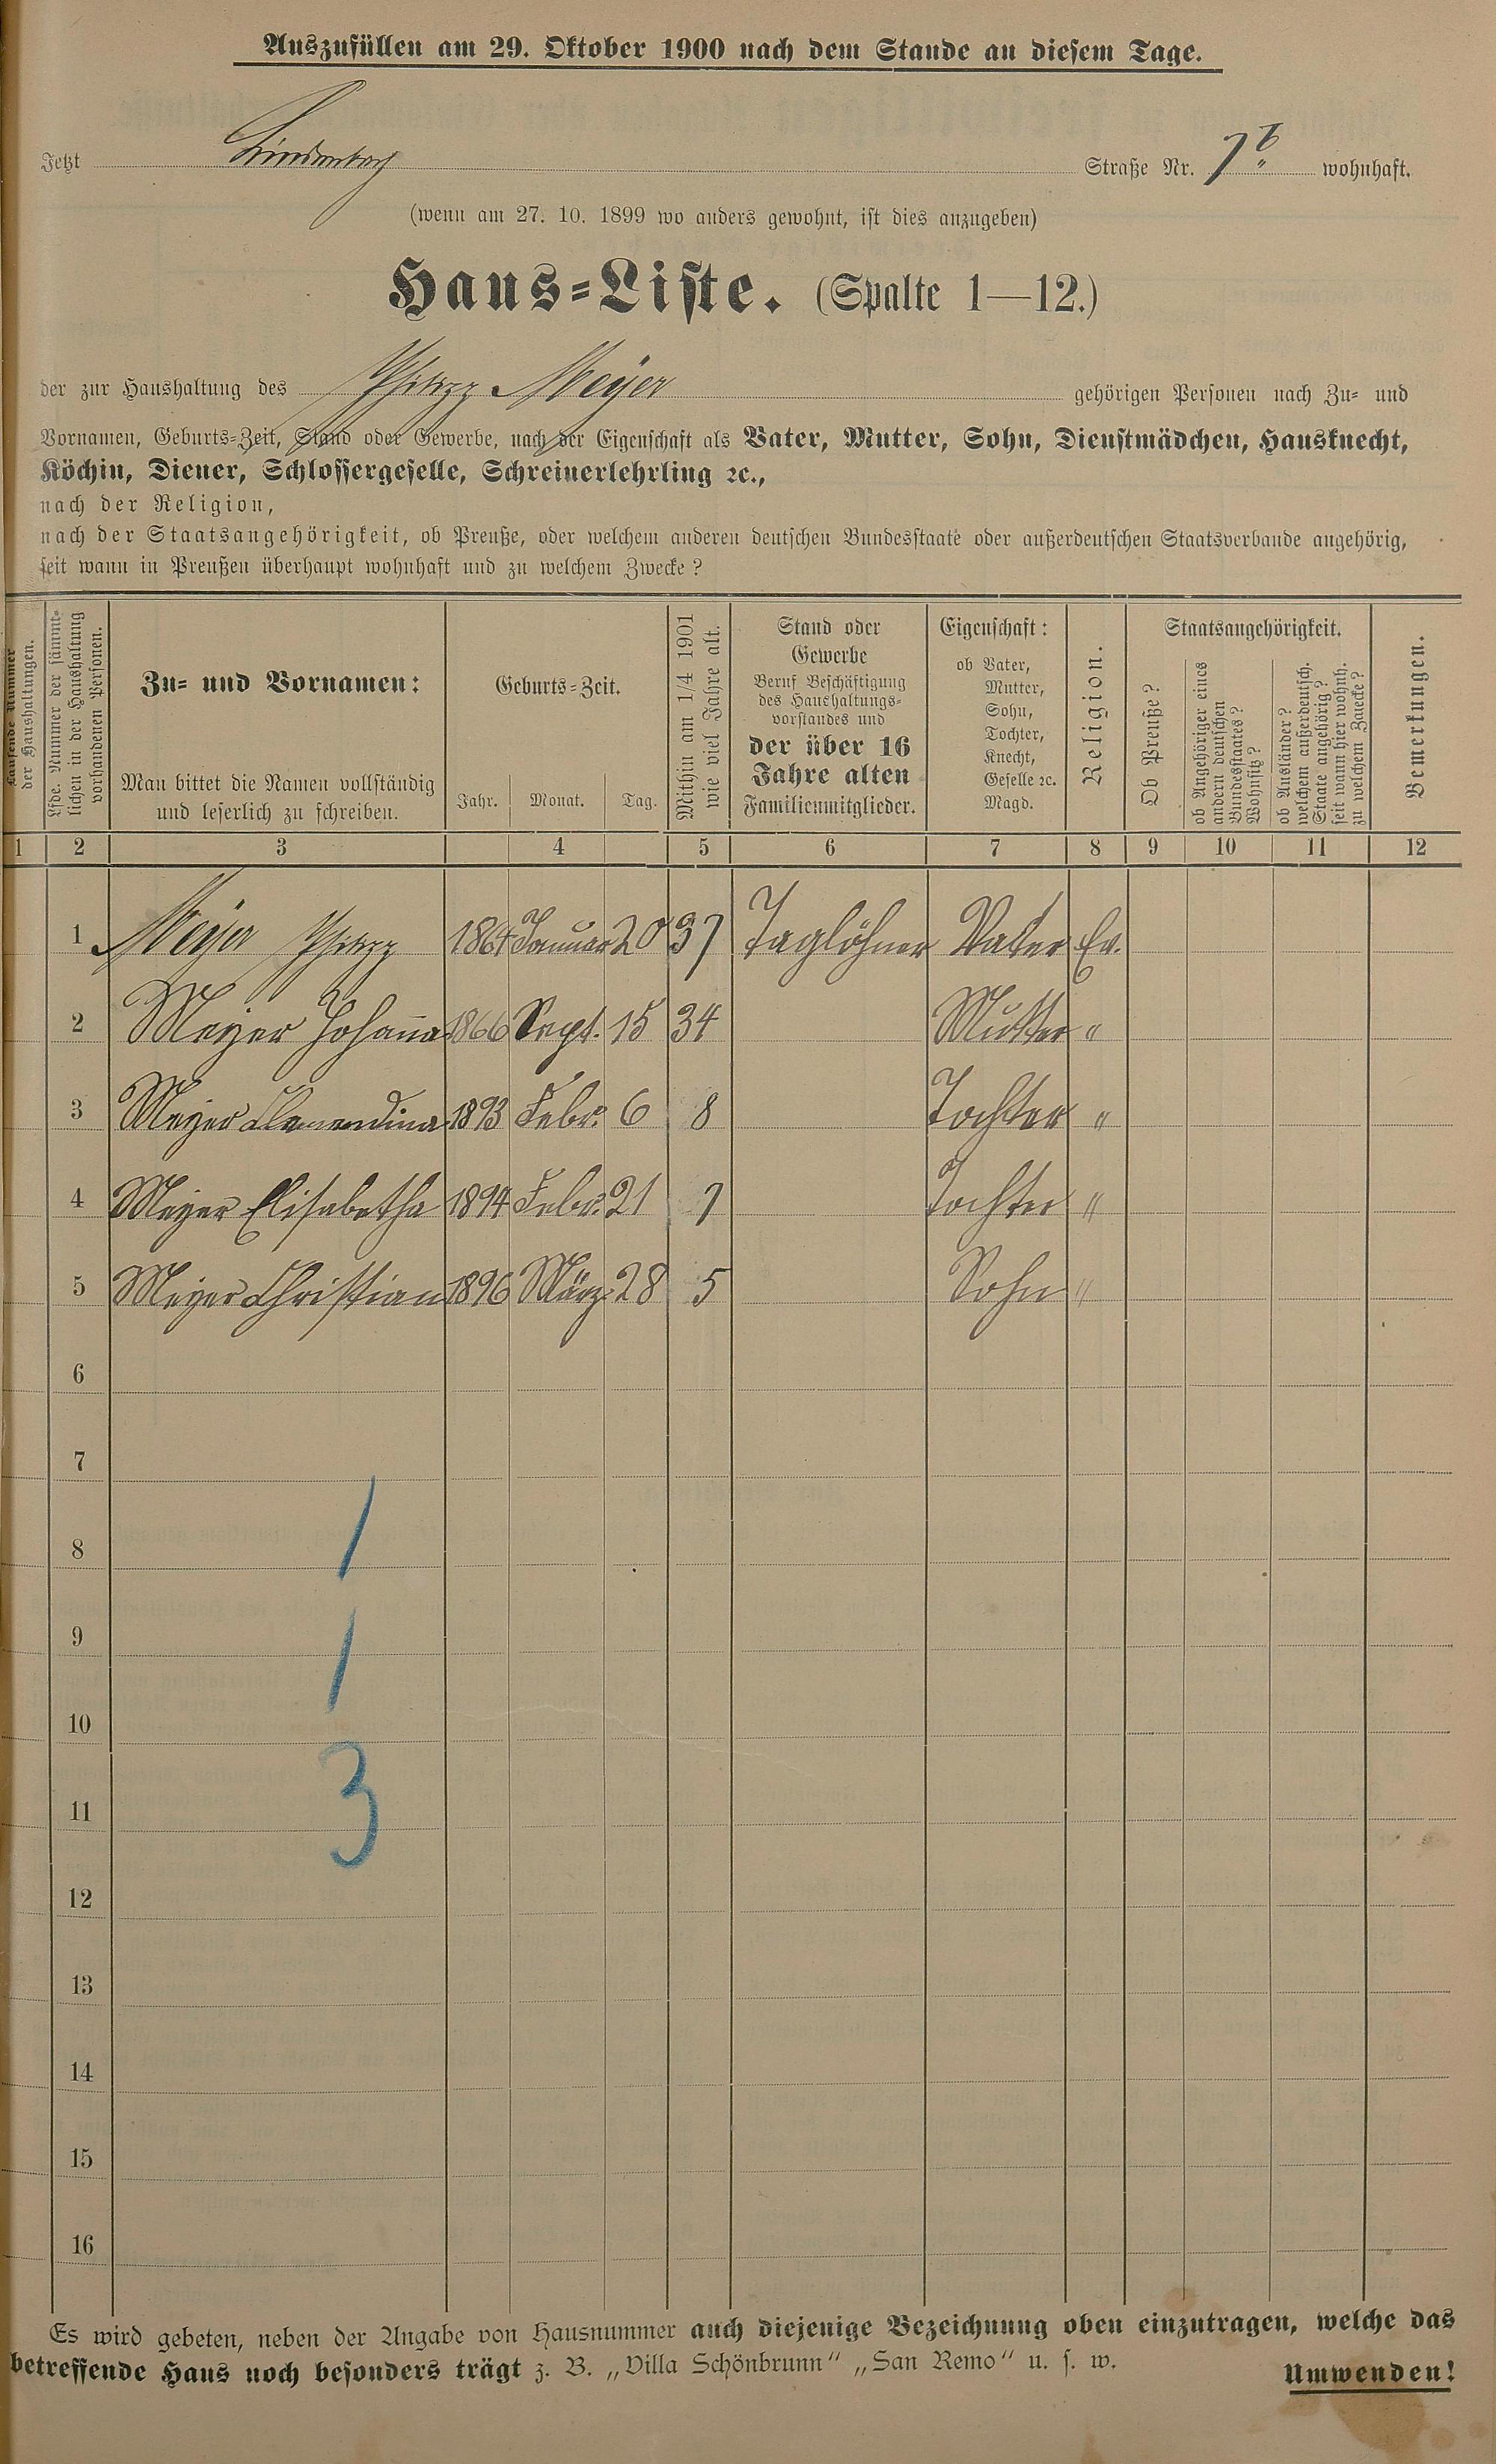 Auszufüllen am 29. Oktober 1900 nach dem Stande an diesem Tage.
Jetzt Lindenbach Straße Nr. 7b wohnhaft.
(wenn am 27. 10. 1899 wo anders gewohnt, ist dies anzugeben)
Haus-Liste. (Spalte 1—12.)
der zur Haushaltung des Philipp Meyer gehörigen Personen nach Zu- und
Vornamen, Geburts-Zeit, Stand oder Gewerbe, nach der Eigenschaft als Vater, Mutter, Sohn, Dienstmädchen, Hausknecht,
Köchin, Diener, Schlossergeselle, Schreinerlehrling ꝛc.,
nach der Religion,
nach der Staatsangehörigkeit, ob Preuße, oder welchem anderen deutschen Bundesstaate oder außerdeutschen Staatsverbande angehörig,
seit wann in Preußen überhaupt wohnhaft und zu welchem Zwecke?
Laufende Nummer
der Haushaltungen.
Lfde. Nummer der sämmt-
lichen in der Haushaltung
vorhandenen Personen.
Zu- und Vornamen:
Man bittet die Namen vollständig
und leserlich zu schreiben.
Geburts-Zeit.
Jahr. Monat. Tag.
Mithin am 1/4 1901
wie viel Jahre alt.
Stand oder
Gewerbe
Beruf Beschäftigung
des Haushaltungs-
vorstandes und
der über 16
Jahre alten
Familienmitglieder.
Eigenschaft:
ob Vater,
Mutter,
Sohn,
Tochter,
Knecht,
Geselle ꝛc.
Magd.
Religion.
Staatsangehörigkeit.
Ob Preuße?
ob Angehöriger eines
andern deutschen
Bundesstaates?
Wohnsitz?
ob Ausländer?
welchem außerdeutsch.
Staate angehörig?
seit wann hier wohnh.
zu welchem Zwecke?
Bemerkungen.
1 2 3 4 5 6 7 8 9 10 11 12
1 Meyer Philipp 1864 Januar 20 37 Taglöhner Vater Ev.
2 Meyer Johanna 1866 Sept. 15 34 Mutter "
3 Meyer Clemendina 1893 Febr. 6 8 Tochter "
4 Meyer Elisabetha 1894 Febr. 21 7 Tochter "
5 Meyer Christian 1896 März 28 5 Sohn "
6
7
8 1
9 1
10
11 3
12
13
14
15
16
Es wird gebeten, neben der Angabe von Hausnummer auch diejenige Bezeichnung oben einzutragen, welche das
betreffende Haus noch besonders trägt z. B. „Villa Schönbrunn“ „San Remo“ u. s. w.
Umwenden!